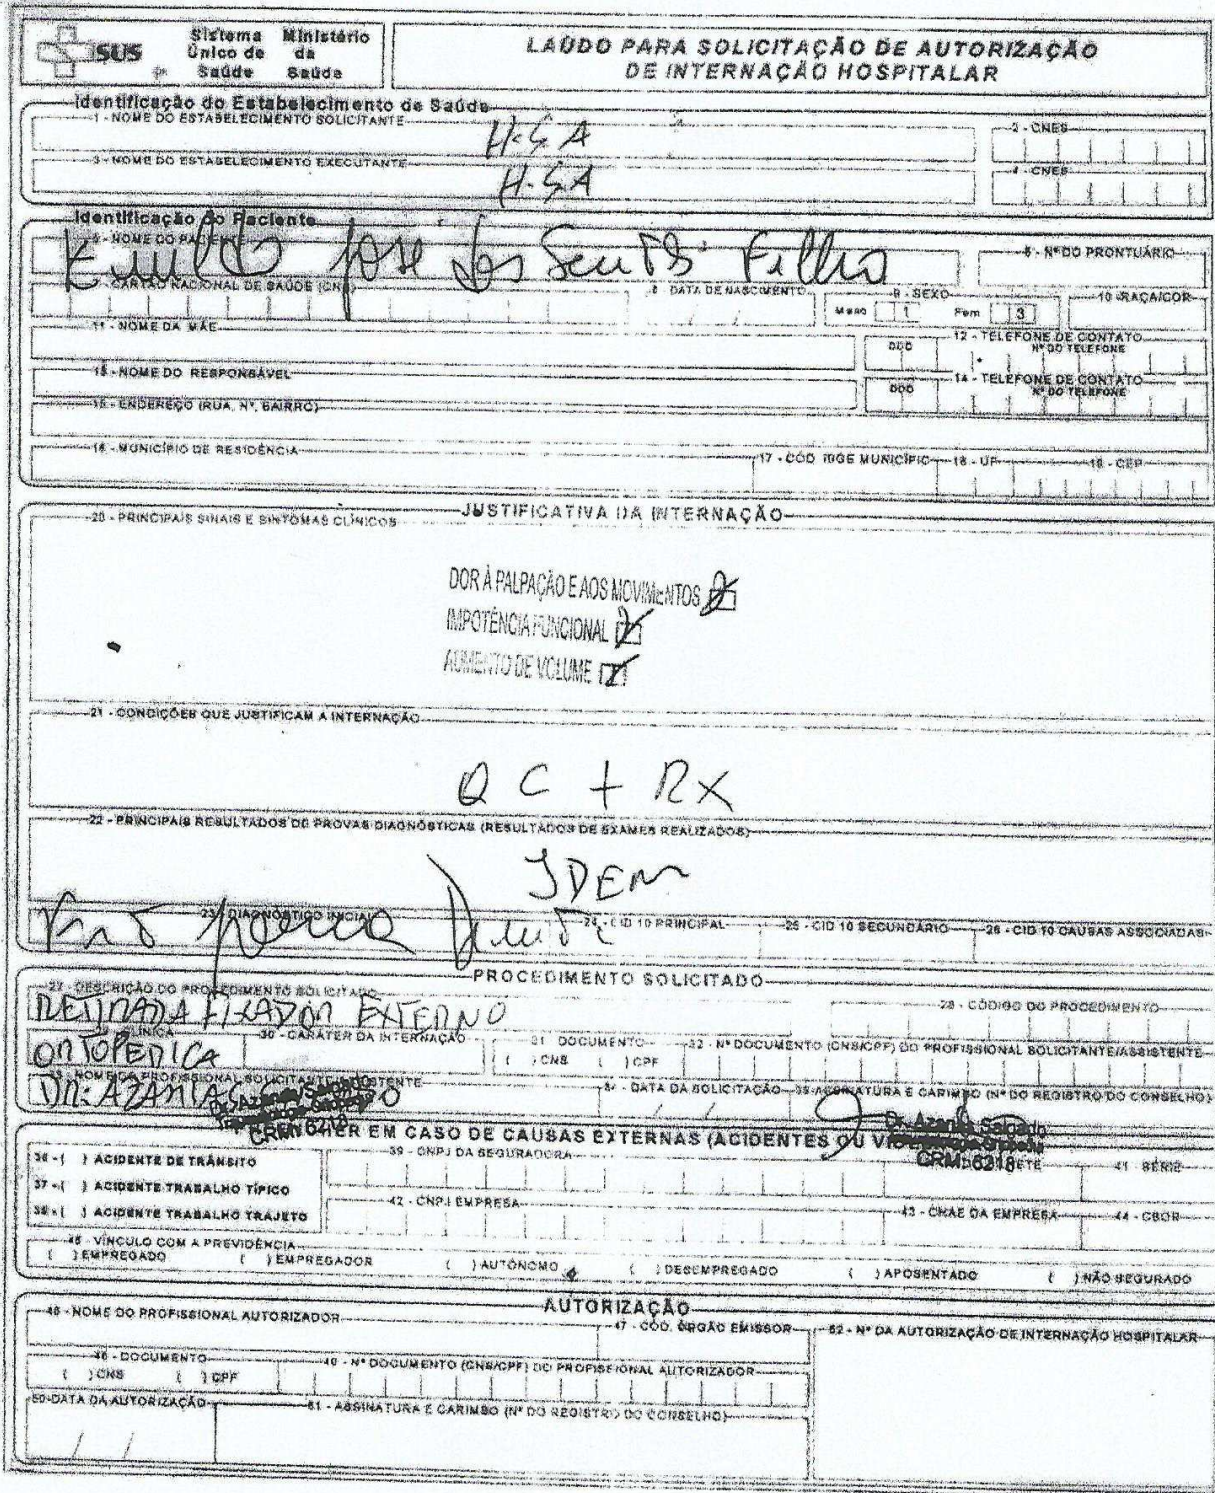 SUS
Sistema Único de Saúde
Ministério da Saúde
LAUDO PARA SOLICITAÇÃO DE AUTORIZAÇÃO
DE INTERNAÇÃO HOSPITALAR
Identificação do Estabelecimento de Saúde
1 - NOME DO ESTABELECIMENTO SOLICITANTE
2 - CNES
3 - NOME DO ESTABELECIMENTO EXECUTANTE
4 - CNES
Identificação do Paciente
5 - NOME DO PACIENTE
José dos Filho
6 - Nº DO PRONTUÁRIO
CARTÃO NACIONAL DE SAÚDE (CNS)
8 - DATA DE NASCIMENTO
9 - SEXO
Masc 1 Fem 3
10 - RAÇA/COR
11 - NOME DA MÃE
12 - TELEFONE DE CONTATO
DDD Nº DO TELEFONE
13 - NOME DO RESPONSÁVEL
14 - TELEFONE DE CONTATO
DDD Nº DO TELEFONE
15 - ENDEREÇO (RUA, Nº, BAIRRO)
16 - MUNICÍPIO DE RESIDÊNCIA
17 - CÓD. IBGE MUNICÍPIO
18 - UF
19 - CEP
JUSTIFICATIVA DA INTERNAÇÃO
20 - PRINCIPAIS SINAIS E SINTOMAS CLÍNICOS
DOR À PALPAÇÃO E AOS MOVIMENTOS
IMPOTÊNCIA FUNCIONAL
AUMENTO DE VOLUME
21 - CONDIÇÕES QUE JUSTIFICAM A INTERNAÇÃO
QC + RX
22 - PRINCIPAIS RESULTADOS DE PROVAS DIAGNÓSTICAS (RESULTADOS DE EXAMES REALIZADOS)
IDEM
23 - DIAGNÓSTICO INICIAL
24 - CID 10 PRINCIPAL
25 - CID 10 SECUNDÁRIO
26 - CID 10 CAUSAS ASSOCIADAS
PROCEDIMENTO SOLICITADO
27 - DESCRIÇÃO DO PROCEDIMENTO SOLICITADO
RETIRADA FIXADOR EXTERNO
28 - CÓDIGO DO PROCEDIMENTO
CLÍNICA
ORTOPEDICA
30 - CARÁTER DA INTERNAÇÃO
31 DOCUMENTO
( ) CNS ( ) CPF
32 - Nº DOCUMENTO (CNS/CPF) DO PROFISSIONAL SOLICITANTE/ASSISTENTE
NOME DO PROFISSIONAL SOLICITANTE/ASSISTENTE
DR: AZARIAS
CRM 6218
34 - DATA DA SOLICITAÇÃO
35 - ASSINATURA E CARIMBO (Nº DO REGISTRO DO CONSELHO)
Dr. Azarias Salgado
CRM: 6218
EM CASO DE CAUSAS EXTERNAS (ACIDENTES OU
36 - ( ) ACIDENTE DE TRÂNSITO
37 - ( ) ACIDENTE TRABALHO TÍPICO
38 - ( ) ACIDENTE TRABALHO TRAJETO
39 - CNPJ DA SEGURADORA
41 - SÉRIE
42 - CNPJ EMPRESA
43 - CNAE DA EMPRESA
44 - CBOR
45 - VÍNCULO COM A PREVIDÊNCIA
( ) EMPREGADO ( ) EMPREGADOR ( ) AUTÔNOMO ( ) DESEMPREGADO ( ) APOSENTADO ( ) NÃO SEGURADO
AUTORIZAÇÃO
46 - NOME DO PROFISSIONAL AUTORIZADOR
47 - CÓD. ÓRGÃO EMISSOR
52 - Nº DA AUTORIZAÇÃO DE INTERNAÇÃO HOSPITALAR
48 - DOCUMENTO
( ) CNS ( ) CPF
49 - Nº DOCUMENTO (CNS/CPF) DO PROFISSIONAL AUTORIZADOR
50 - DATA DA AUTORIZAÇÃO
51 - ASSINATURA E CARIMBO (Nº DO REGISTRO DO CONSELHO)